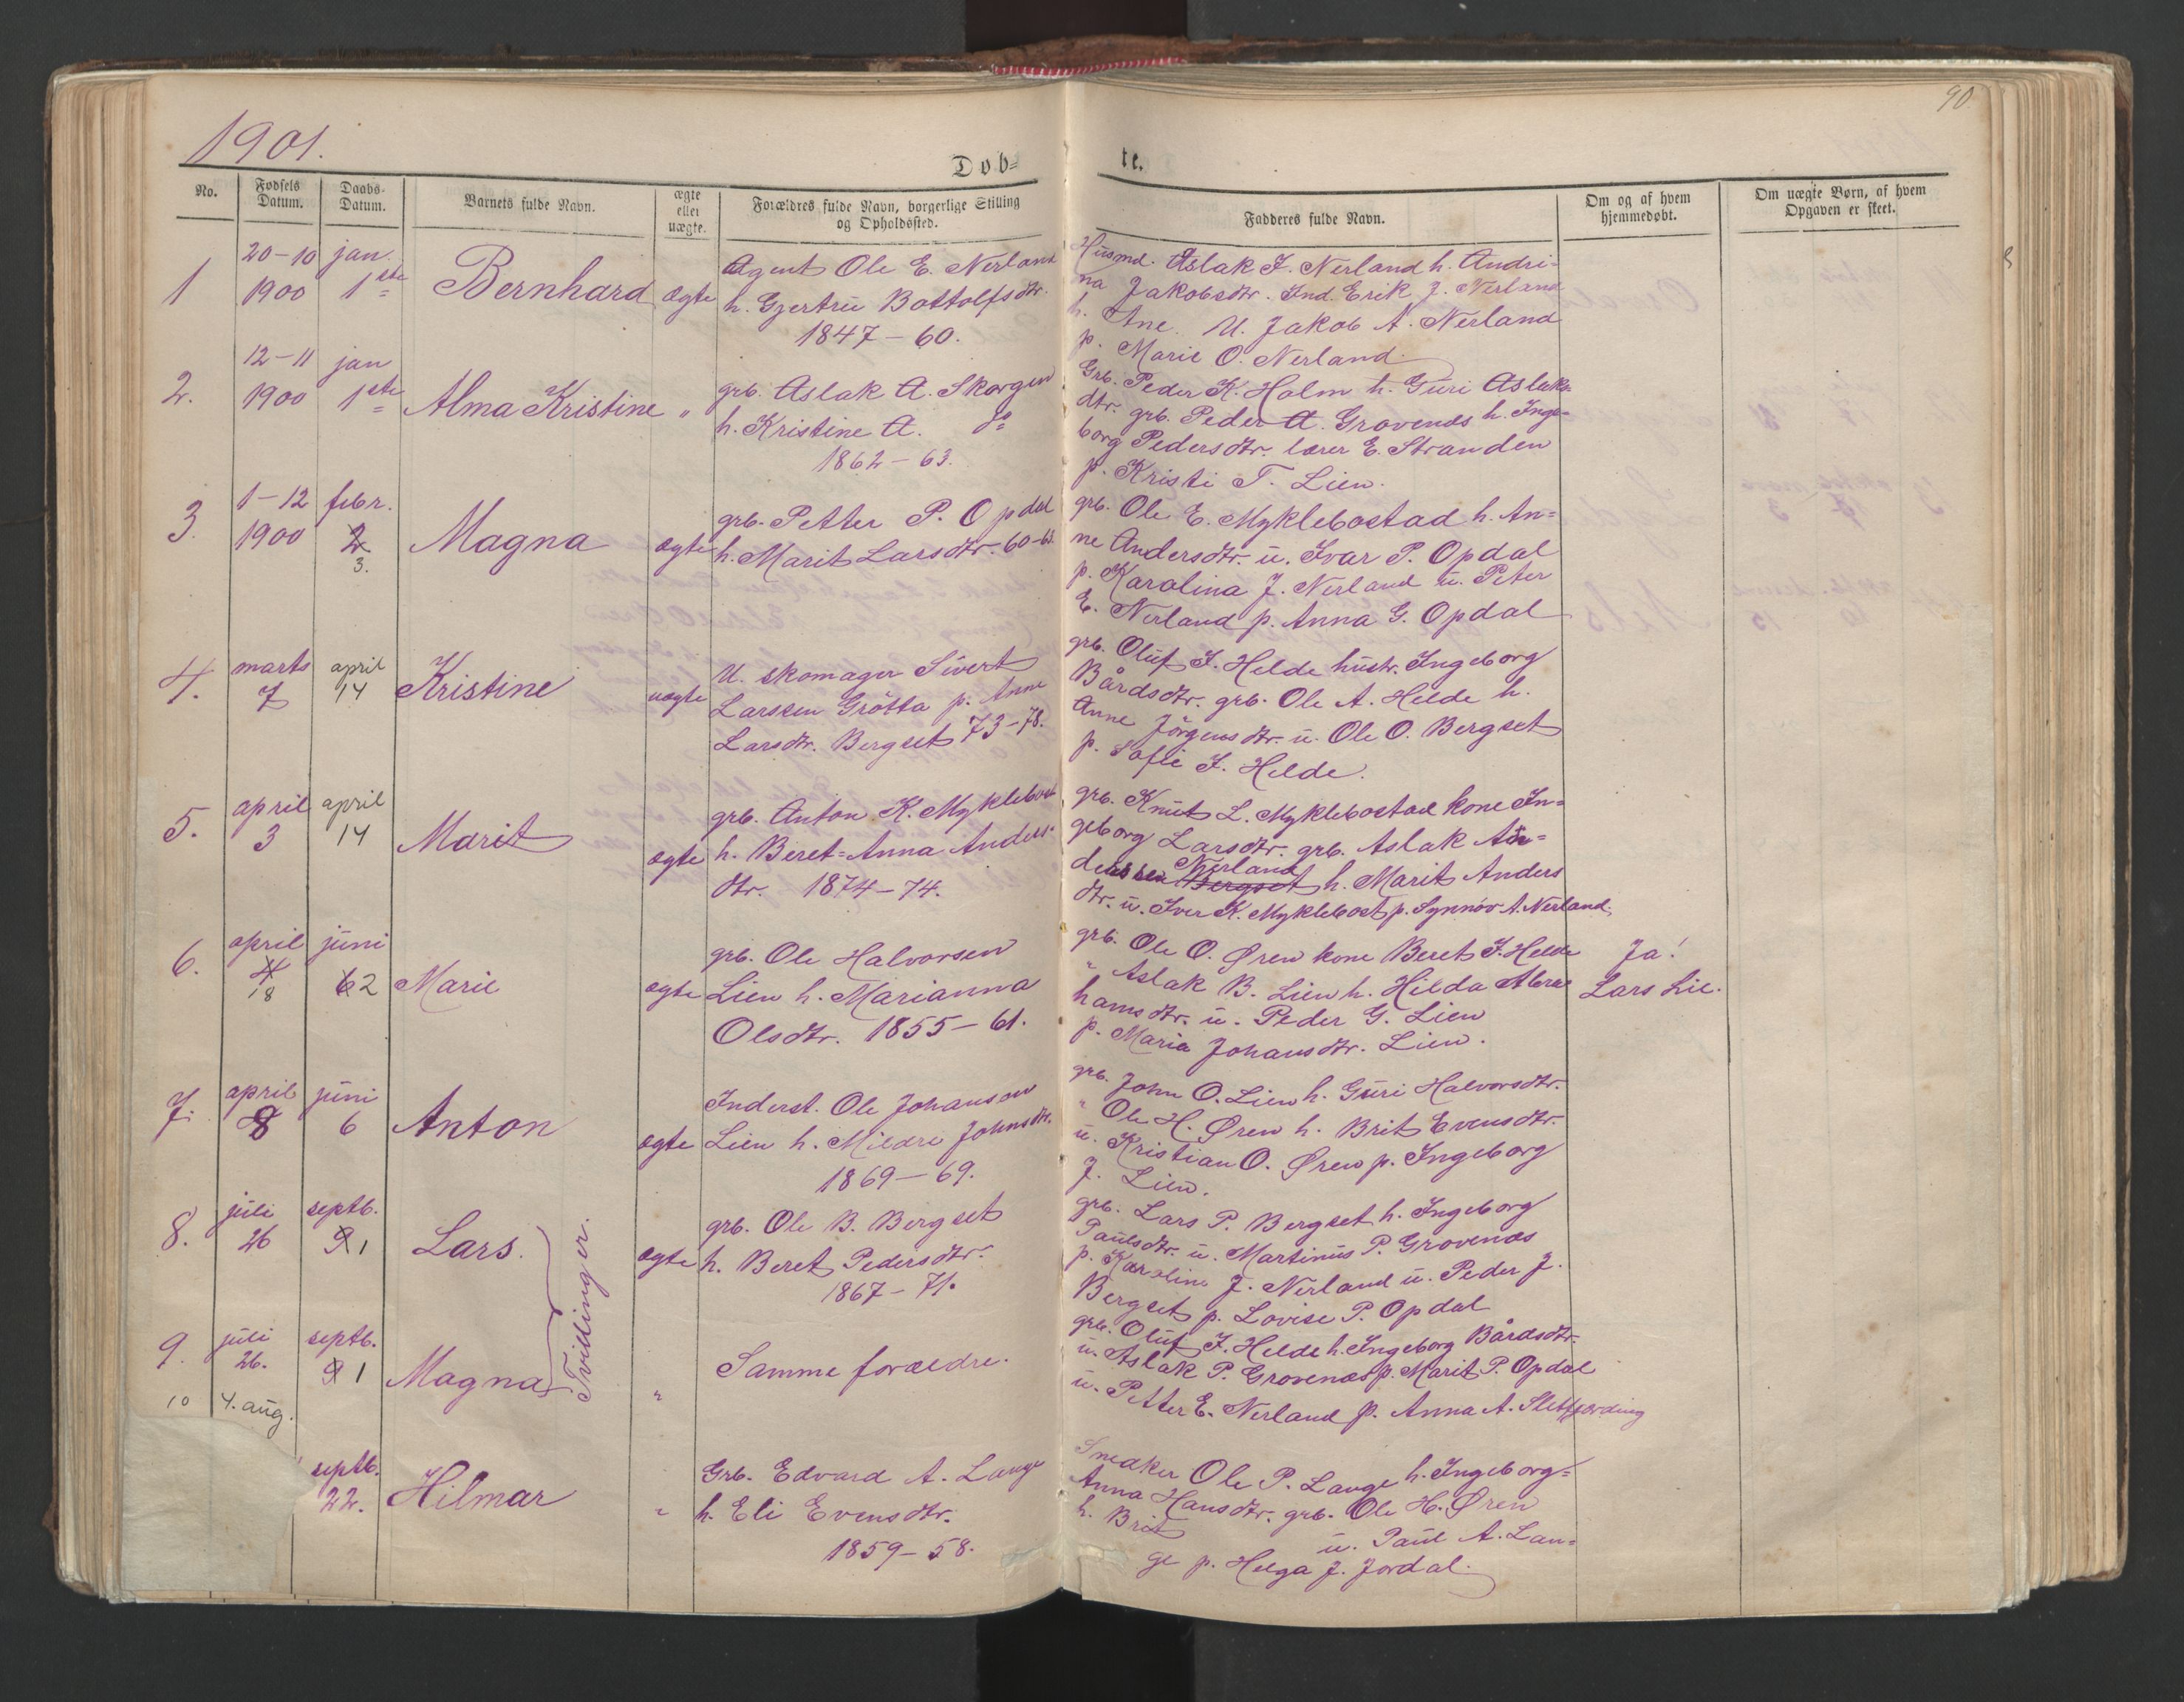 90
1901.
Døb=
te.
No.
Fødsels Datum.
Daabs-Datum.
Barnets fulde Navn.
ægte eller uægte.
Forældres fulde Navn, borgerlige Stilling og Opholdssted.
Fadderes fulde Navn.
Om og af hvem hjemmedøbt.
Om uægte Børn, af hvem Opgaven er skeet.
1
20-10 1900
jan. 1ste
Bernhard
ægte
Agent Ole E. Nerland
h. Gjertru Bottolfsdtr.
1847-60.
Husmd. Aslak J. Nerland h. Andri=
na Jakobsdtr. Ind. Erik J. Nerland
h. Ane. U. Jakob A. Nerland
p. Marie O. Nerland.
2.
12-11 1900
jan 1ste
Alma Kristine
"
grb. Aslak A. Skorgen
h. Kristine A. do
1862-63.
Grb. Peder K. Holm h. Guri Aslaks
dtr. grb. Peder A. Grovenæs h. Inge=
borg Pedersdtr. lærer E. Stranden
p. Kristi T. Lien.
3.
1-12 1900
febr. 2 3.
Magna
ægte
grb. Petter P. Opdal
h. Marit Larsdtr. 60-63.
grb. Ole E. Myklebostad h. An=
ne Andersdtr. u. Ivar P. Opdal
p. Karolina J. Nerland u. Peter
E. Nerland p. Anna G. Opdal
4.
marts 7
april 14
Kristine
uægte
U. skomager Sivert
Larssen Grötta p. Anne
Larsdtr. Bergset 73-78.
grb. Oluf I. Helde hustr. Ingeborg
Bårdsdtr. grb. Ole A. Helde h.
Anne Jörgensdtr. u. Ole O. Bergset
p. Sofie I. Helde.
5.
april 3
april 14
Marit
ægte
grb. Anton K. Myklebost
h. Beret=Anna Anders=
dtr. 1874-74.
grb. Knut L. Myklebostad kone In=
geborg Larsdtr. grb. Aslak An=
Nerland
derssen Bergset h. Marit Anders
dtr. u. Iver K. Myklebost p. Synnöv A. Nerland.
6.
april 4 18
juni 6 2
Marie
ægte
grb. Ole Halvorsen
Lien h. Marianna
Olsdtr. 1855-61.
grb. Ole O. Øren kone Beret I. Helde
" Aslak B. Lien h. Hilda Abra=
hamsdtr. u. Peder G. Lien
p. Maria Johansdtr. Lien.
Ja!
Lars Lie.
7.
april 8
juni 6
Anton
ægte
Inderst. Ole Johansen
Lien h. Mildri Johnsdtr.
1869-69.
grb. John O. Lien h. Guri Halvorsdtr.
" Ole H. Øren h. Brit Evensdtr.
u. Kristian O. Øren p. Ingeborg
J. Lien.
8.
juli 26
septb. 9 1
Lars.
ægte
grb. Ole B. Bergset
h. Beret Pedersdtr.
1867-71.
grb. Lars P. Bergset h. Ingeborg
Paulsdtr. u. Martinus P. Grovenæs
p. Karoline J. Nerland u. Peder J.
Bergset p. Lovise P. Opdal
Tvillinger.
9.
juli 26.
septb. 9 1
Magna
"
Samme forældre.
grb. Oluf I. Helde h. Ingeborg Bårdsdtr.
u. Aslak P. Grovenæs p. Marit P. Opdal
u. Petter E. Nerland p. Anna A. Sletfjerding
10
4. aug.
septb. 22.
Hilmar
"
Grb. Edvard A. Lange
h. Eli Evensdtr.
1859-58.
Snedker Ole P. Lange h. Ingeborg=
Anna Hansdtr. grb. Ole H. Øren
h. Brit u. Paul A. Lan=
ge p. Helga J. Jordal.